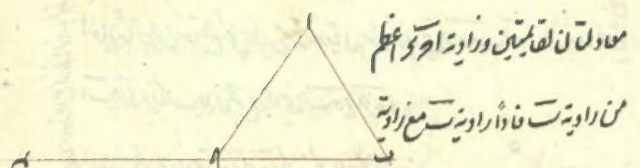 معادلتان لقائمتين وزاوية ا ح ء اعظم
من زاوية ب فاذاً زاوية ب مع زاوية
ا
ء ح ب